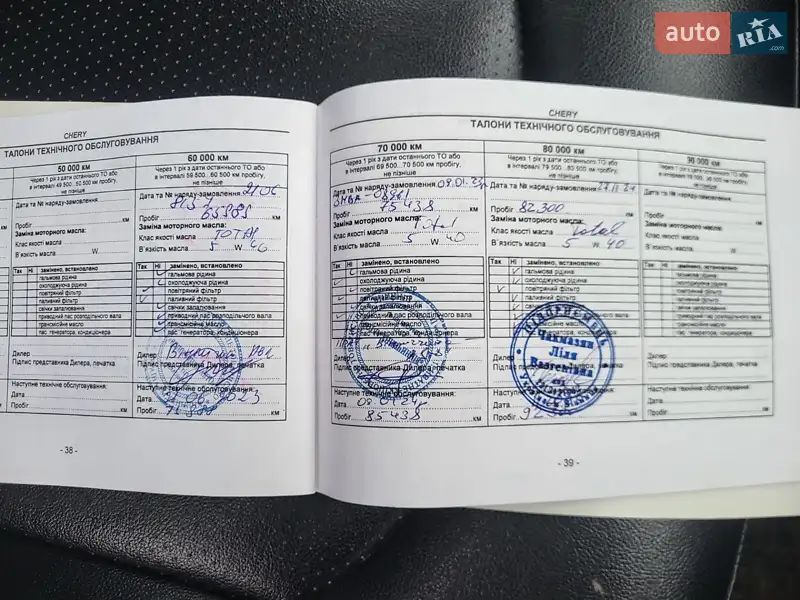 auto RIA .com
CHERY
ТАЛОНИ ТЕХНІЧНОГО ОБСЛУГОВУВАННЯ
50 000 км
Через 1 рік з дати останнього ТО або
в інтервалі 49 500...50 500 км пробігу,
не пізніше
Дата та № наряду-замовлення
Пробіг км
Заміна моторного масла:
Клас якості масла
В`язкість масла W
Так Ні замінено, встановлено
гальмова рідина
охолоджуюча рідина
повітряний фільтр
паливний фільтр
свічки запалювання
привідний пас розподільчого вала
трансмісійне масло
пас генератора, кондиціонера
Дилер
Підпис представника Дилера, печатка
Наступне технічне обслуговування:
Дата
Пробіг км
60 000 км
Через 1 рік з дати останнього ТО або
в інтервалі 59 500...60 500 км пробігу,
не пізніше
Дата та № наряду-замовлення
Пробіг 65389 км
Заміна моторного масла:
Клас якості масла TOTAL
В`язкість масла 5 W 40
Так Ні замінено, встановлено
гальмова рідина
охолоджуюча рідина
повітряний фільтр
паливний фільтр
свічки запалювання
привідний пас розподільчого вала
трансмісійне масло
пас генератора, кондиціонера
Дилер
Підпис представника Дилера, печатка
Наступне технічне обслуговування:
Дата
Пробіг км
- 38 -
CHERY
ТАЛОНИ ТЕХНІЧНОГО ОБСЛУГОВУВАННЯ
70 000 км
Через 1 рік з дати останнього ТО або
в інтервалі 69 500...70 500 км пробігу,
не пізніше
Дата та № наряду-замовлення 09.01.23
Пробіг 75438 км
Заміна моторного масла:
Клас якості масла Total
В`язкість масла 5 W 40
Так Ні замінено, встановлено
гальмова рідина
охолоджуюча рідина
повітряний фільтр
паливний фільтр
свічки запалювання
привідний пас розподільчого вала
трансмісійне масло
пас генератора, кондиціонера
Підпис представника Дилера, печатка
Наступне технічне обслуговування:
Дата 09.01.24
Пробіг 85438 км
80 000 км
Через 1 рік з дати останнього ТО або
в інтервалі 79 500...80 500 км пробігу,
не пізніше
Дата та № наряду-замовлення
Пробіг 82.300 км
Заміна моторного масла:
Клас якості масла Total
В`язкість масла 5 W 40
Так Ні замінено, встановлено
гальмова рідина
охолоджуюча рідина
повітряний фільтр
паливний фільтр
ПІДПРИЄМЕЦЬ
Чакмазян
Ліля
Вазгенівна
Дата
Пробіг км
90 000 км
Через 1 рік з дати останнього ТО або
не пізніше
Дата та № наряду-замовлення
Пробіг км
Заміна моторного масла:
Клас якості масла
В`язкість масла W
Так Ні замінено, встановлено
гальмова рідина
охолоджуюча рідина
повітряний фільтр
паливний фільтр
свічки запалювання
привідний пас розподільчого вала
трансмісійне масло
пас генератора, кондиціонера
Дилер
Підпис представника Дилера, печатка
Наступне технічне обслуговування:
Дата
Пробіг км
- 39 -